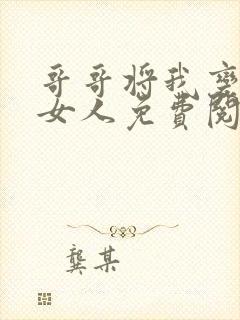 哥哥将我变
女人免费阅
龚某